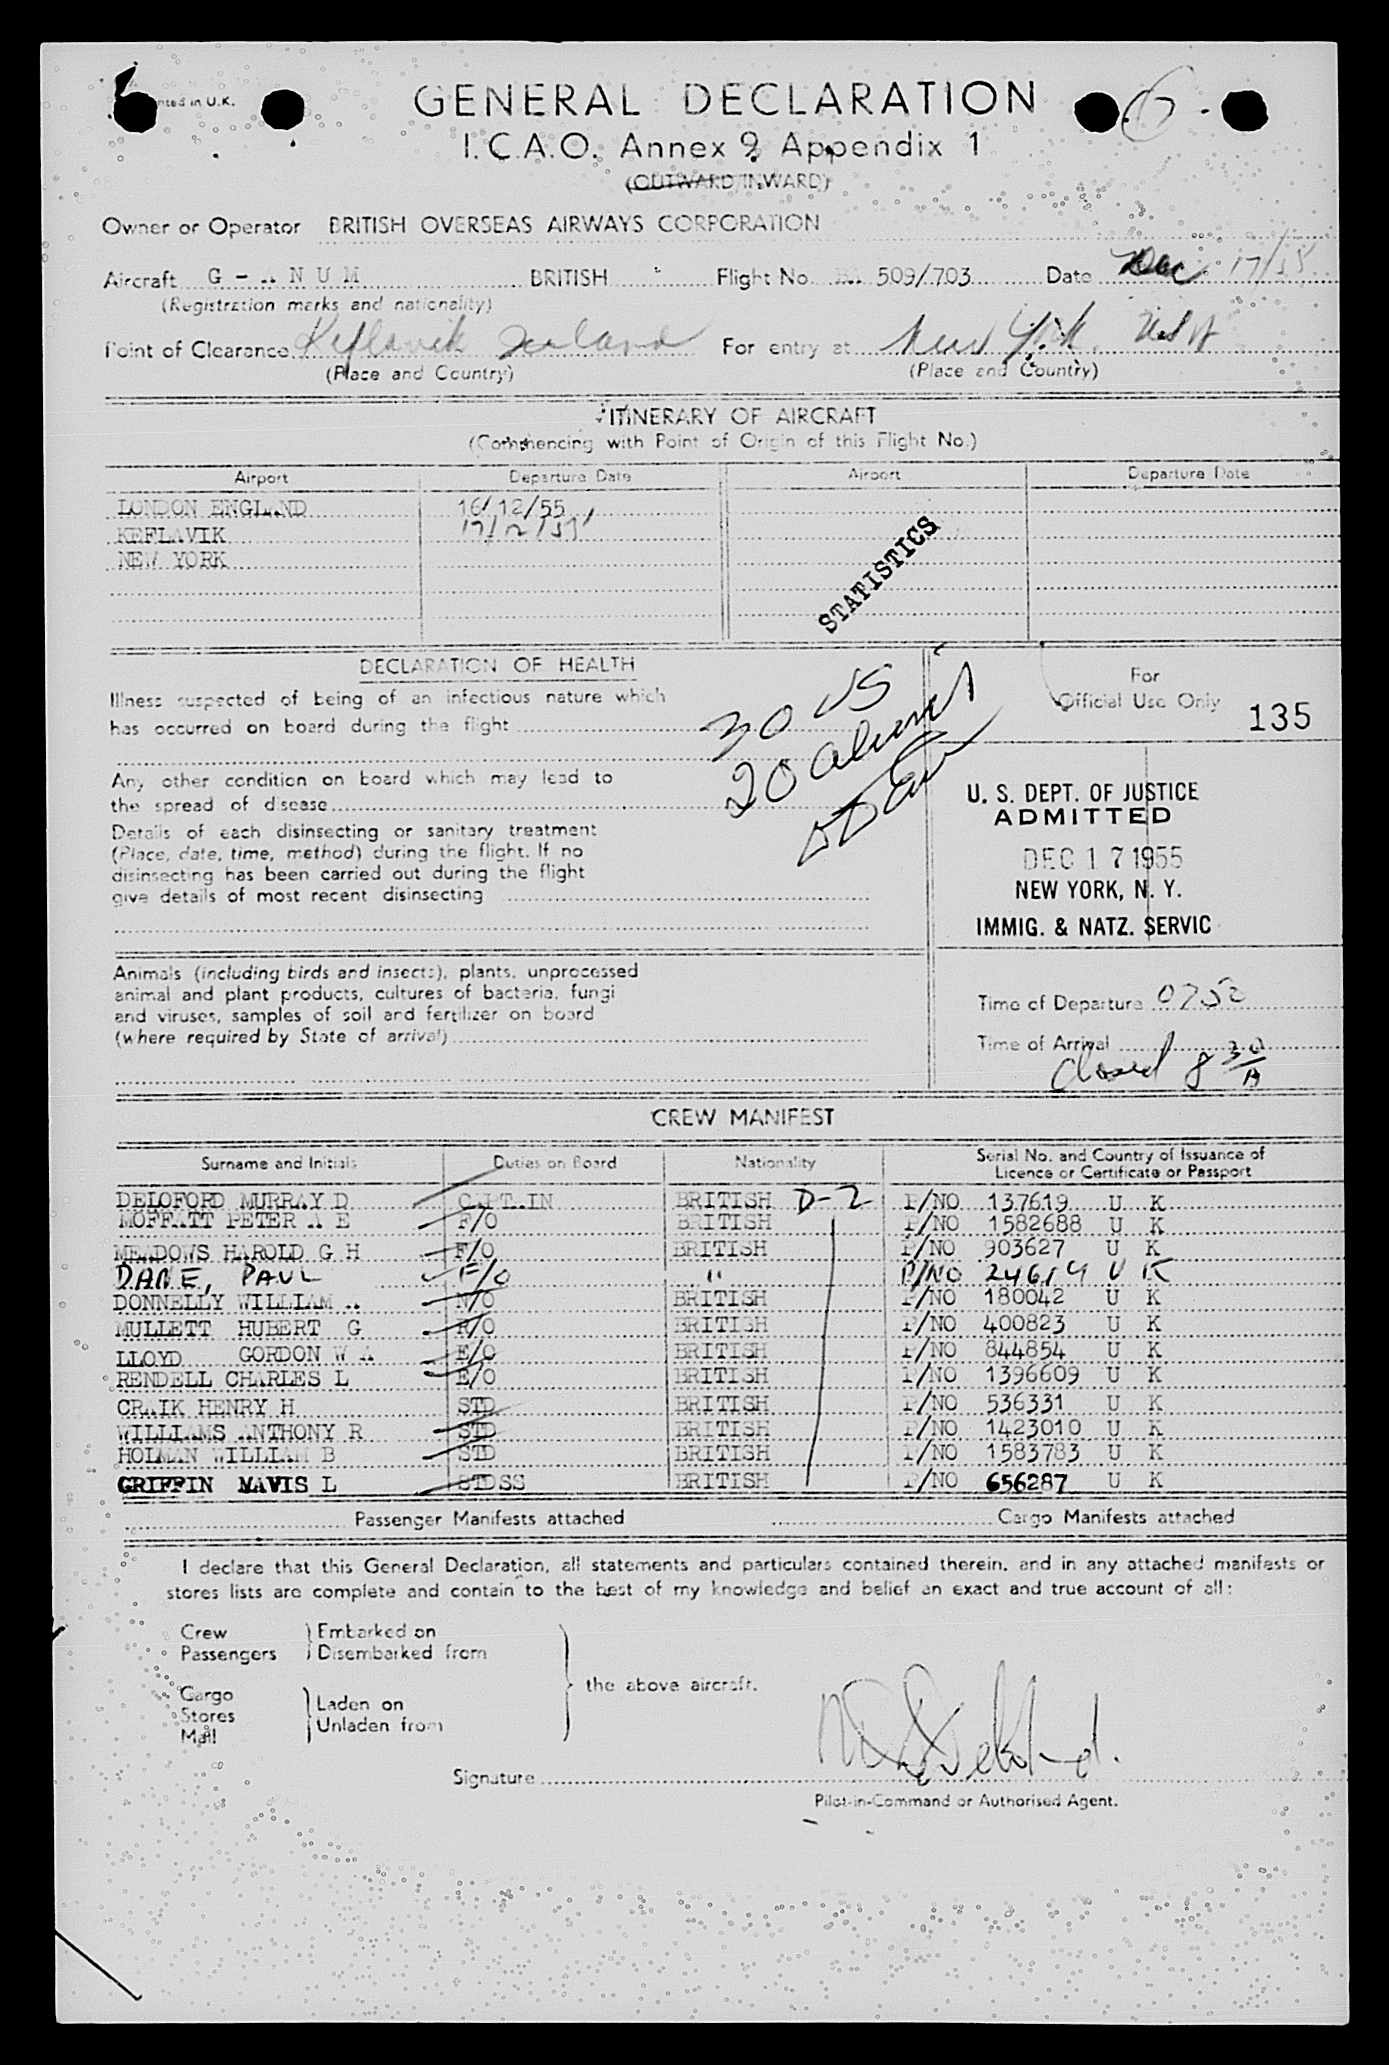 Printed in U.K.
GENERAL DECLARATION
6
I.C.A.O. Annex 9 Appendix 1
(OUTWARD/INWARD)
Owner or Operator BRITISH OVERSEAS AIRWAYS CORPORATION
Aircraft G - A N U M BRITISH Flight No. BA 509/703 Date Dec 17/55
(Registration marks and nationality)
Point of Clearance Keflavik Iceland For entry at New York. USA
(Place and Country) (Place and Country)
ITINERARY OF AIRCRAFT
(Commencing with Point of Origin of this Flight No.)
Airport Departure Date Airport Departure Date
LONDON ENGLAND 16/12/55
KEFLAVIK 17/12/55
NEW YORK
STATISTICS
DECLARATION OF HEALTH
Illness suspected of being of an infectious nature which
has occurred on board during the flight
Any other condition on board which may lead to
the spread of disease
Details of each disinsecting or sanitary treatment
(Place, date, time, method) during the flight. If no
disinsecting has been carried out during the flight
give details of most recent disinsecting
30 US
20 aliens
For
Official Use Only 135
U. S. DEPT. OF JUSTICE
ADMITTED
DEC 17 1955
NEW YORK, N. Y.
IMMIG. & NATZ. SERVIC
Animals (including birds and insects), plants, unprocessed
animal and plant products, cultures of bacteria, fungi
and viruses, samples of soil and fertilizer on board
(where required by State of arrival)
Time of Departure 0752
Time of Arrival
Closed 8 30/A
CREW MANIFEST
Surname and Initials Duties on Board Nationality Serial No. and Country of Issuance of
Licence or Certificate or Passport
DELOFORD MURRAY D CAPTAIN BRITISH D-2 P/NO 137619 U K
MOFFATT PETER A E F/O BRITISH P/NO 1582688 U K
MEADOWS HAROLD G H F/O BRITISH P/NO 903627 U K
DANE, PAUL F/O " P/NO 24614 U K
DONNELLY WILLIAM A N/O BRITISH P/NO 180042 U K
MULLETT HUBERT G R/O BRITISH P/NO 400823 U K
LLOYD GORDON W A E/O BRITISH P/NO 844854 U K
RENDELL CHARLES L E/O BRITISH P/NO 1396609 U K
CRAIK HENRY H STD BRITISH P/NO 536331 U K
WILLIAMS ANTHONY R STD BRITISH P/NO 1423010 U K
HOLMAN WILLIAM B STD BRITISH P/NO 1583783 U K
GRIFFIN MAVIS L STDSS BRITISH P/NO 656287 U K
Passenger Manifests attached Cargo Manifests attached
I declare that this General Declaration, all statements and particulars contained therein, and in any attached manifests or
stores lists are complete and contain to the best of my knowledge and belief an exact and true account of all:
Crew } Embarked on
Passengers } Disembarked from
the above aircraft.
Cargo
Stores } Laden on
Mail } Unladen from
Signature
Pilot-in-Command or Authorised Agent.